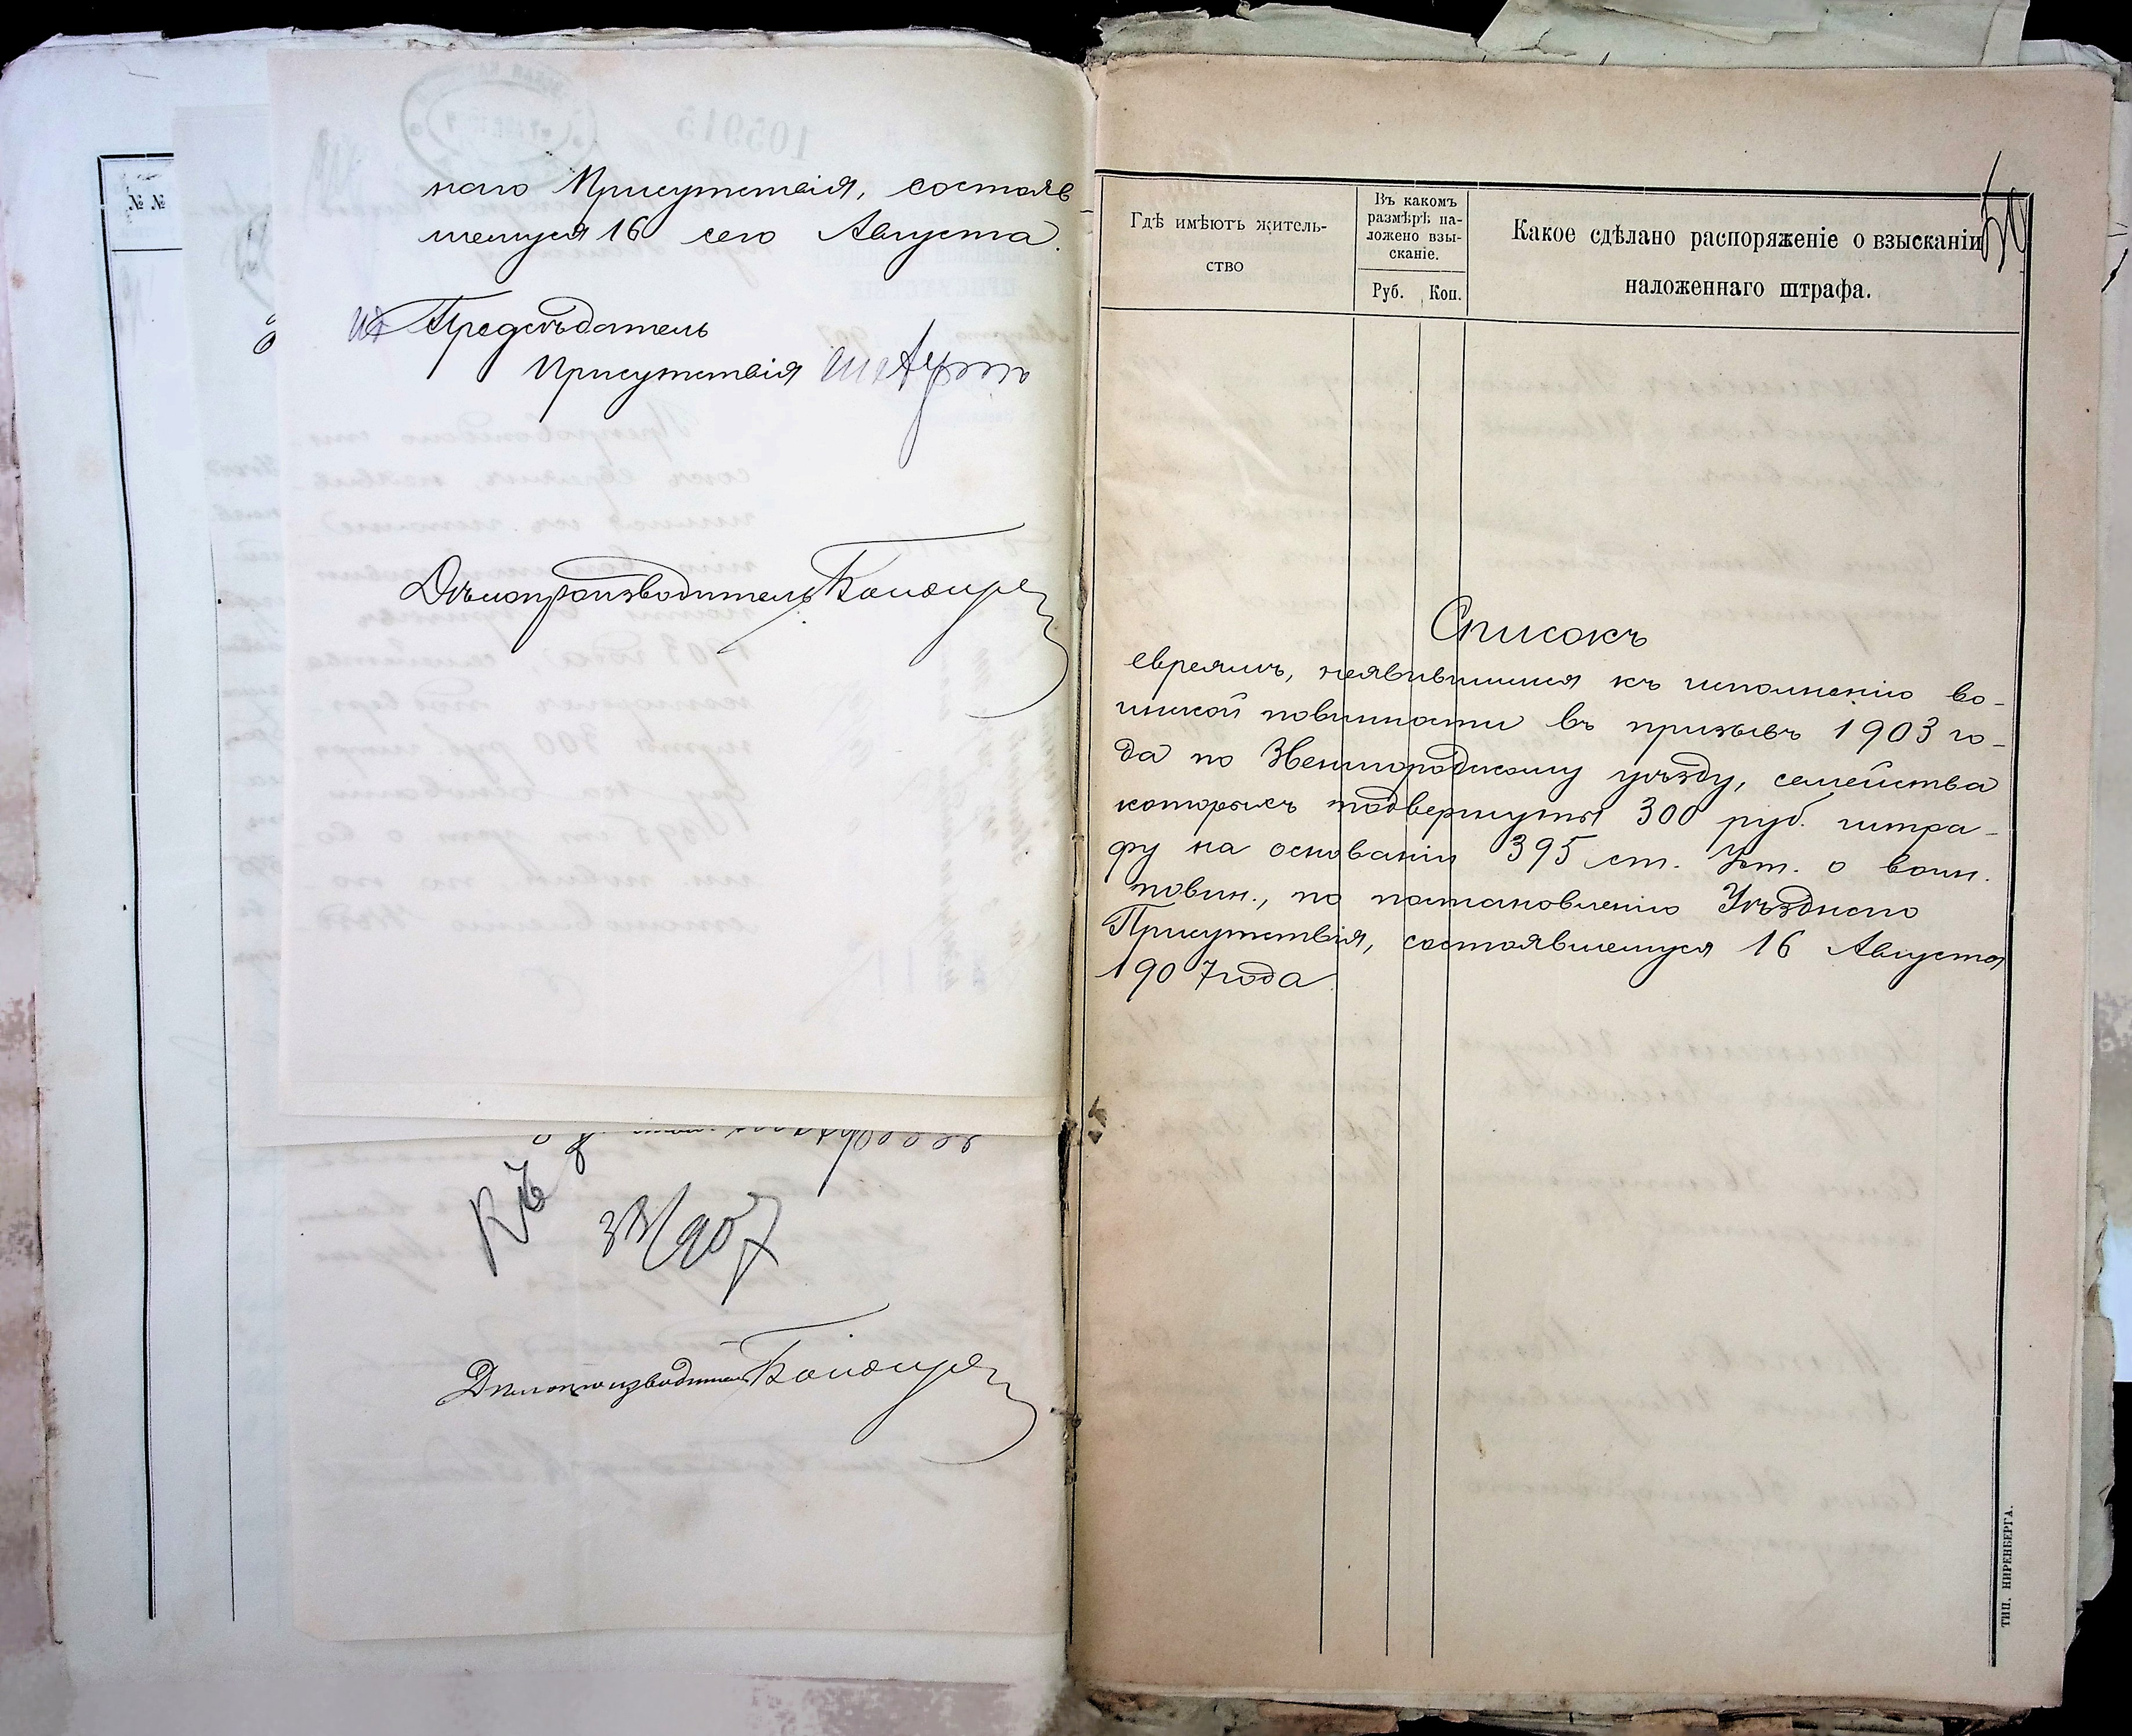 № №
наго Присутствія, состояв-
шемуся 16 сего Августа.
Предсѣдатель
Присутствія
Дѣлопроизводитель
Къ
907
Дѣлопроизводитель
Гдѣ имѣютъ житель-
ство
Въ какомъ
размѣрѣ на-
ложено взы-
сканіе.
Руб. Коп.
Какое сдѣлано распоряженіе о взысканіи
наложеннаго штрафа.
50
Списокъ
евреямъ, неявившимся къ исполненію во-
инской повинности въ призывъ 1903 го-
да по Звенигородскому уѣзду, семейства
которыхъ подвергнуты 300 руб. штра-
фу на основаніи 395 ст. Уст. о воин.
повин., по постановленію Уѣзднаго
Присутствія, состоявшемуся 16 Августа
1907 года.
ТИП. НИРЕНБЕРГА.